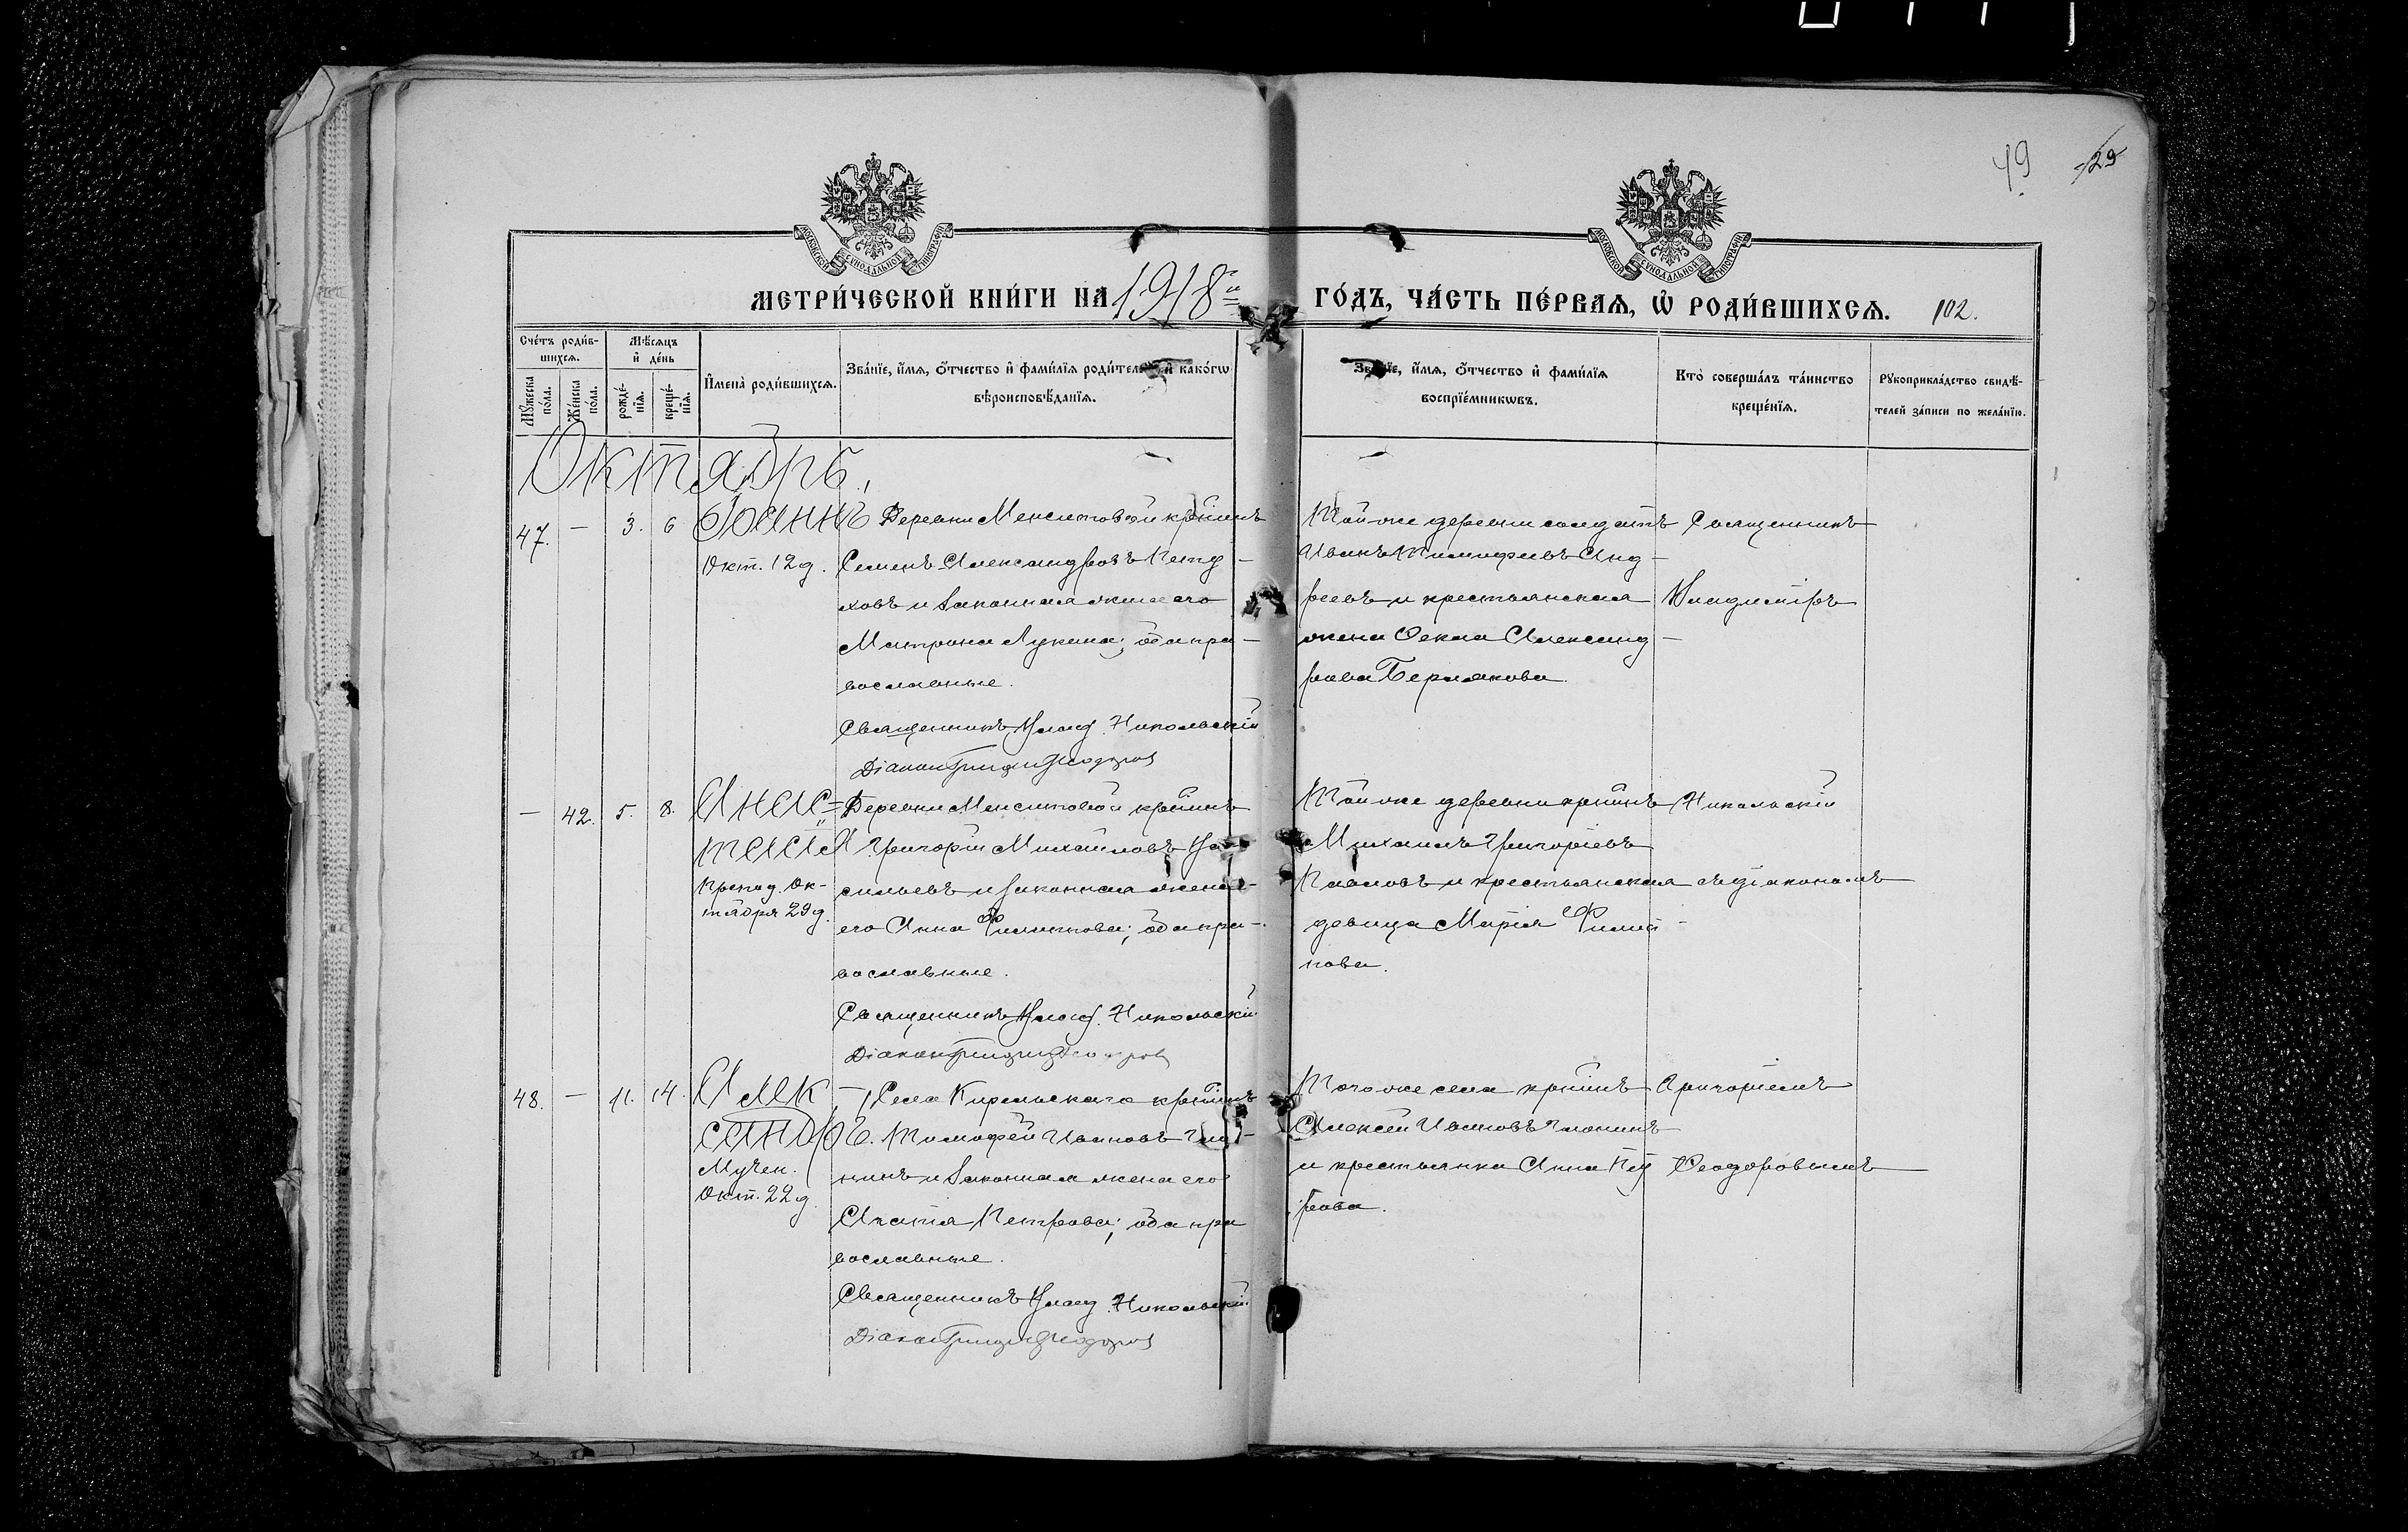 49 29
МОСКОВСКОЙ СѴНОДАЛЬНОЙ ТИПОГРАФІИ
МОСКОВСКОЙ СѴНОДАЛЬНОЙ ТИПОГРАФІИ
МЕТРИ́ЧЕСКОЙ КНИ́ГИ НА 1918й ГО́ДЪ, ЧА́СТЬ ПЕ́РВАѦ, Ѡ҆ РОДИ́ВШИХСѦ. 102.
Сче́тъ роди́в-
шихсѧ.
Мꙋ́жеска по́ла.
Же́нска по́ла.
Мѣ́сѧцъ
и҆ де́нь
рожде́-
нїѧ.
креще́-
нїѧ.
И҆мена̀ роди́вшихсѧ.
Зва́нїе, и҆́мѧ, ѻ҆́тчество и҆ фами́лїѧ роди́телей и҆ како́гѡ
вѣроисповѣ́данїѧ.
Зва́нїе, и҆́мѧ, ѻ҆́тчество и҆ фами́лїѧ
воспрїе́мникѡвъ.
Кто̀ соверша́лъ та́инство
креще́нїѧ.
Рꙋкоприкла́дство свидѣ́-
телей за́писи по жела́нїю.
Октябрь,
47. — 3. 6 Іоаннъ
Окт. 12 д.
Деревни Менситовой кр̃нинъ
Семенъ Александровъ Пету-
ховъ и законная жена его
Матрона Лукина; оба пра-
вославные.
Священникъ Влад. Никольскій
Діаконъ Григорій Ѳеодоровъ
Той же деревни солдатъ
Иванъ Тимофеевъ Анд-
реевъ и крестьянская
жена Ѳекла Александ-
рова Бермякова.
Священникъ
Владиміръ
— 42. 5. 8. Анас=
тасія
Препод. Ок-
тября 29 д.
Деревни Менситовой кр̃нинъ
Григорій Михайловъ Ва-
сильевъ и законная жена
его Анна Филиппова; оба пра-
вославные.
Священникъ Влад. Никольскій
Діаконъ Григорій Ѳеодоровъ
Той же деревни кр̃нинъ
Михаилъ Григорьевъ
Павловъ и крестьянская
девица Марія Филип-
пова.
Никольскій
съ діакономъ
48. — 11. 14. Алек-
сандръ.
Мучен.
Окт. 22 д.
Села Кирельскаго кр̃нинъ
Тимофей Ивановъ
нинъ и законная жена его
Агатія Петрова; оба пра
вославные.
Священникъ Влад. Никольскій
Діаконъ Григорій Ѳеодоровъ
Того же села кр̃нинъ
Алексей Ивановъ
и крестьянка Анна Пет
рова.
Григоріемъ
Ѳеодоровымъ